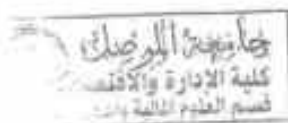 جامعة الموصل
كلية الإدارة والاقتصـ
قسم العلوم المالية